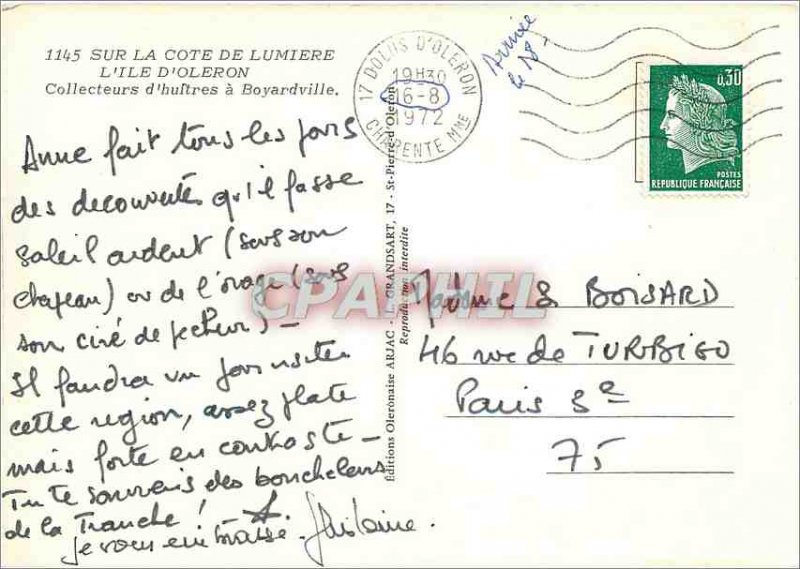 1145 SUR LA COTE DE LUMIERE
L'ILE D'OLERON
Collecteurs d'huîtres à Boyardville.
17 DOLUS D'OLERON
19H30
6-8
1972
CHARENTE Mme
Arrivée
le 18-
0,30
POSTES
REPUBLIQUE FRANÇAISE
Anne fait tous les jours
des decouvertes qu'il fasse
soleil ardent (sous son
chapeau) ou de l'orage (sous
son ciré de pecheur) -
Il faudra un jour visiter
cette region, assez plate
mais forte en contraste -
Tu te souviens des boucholeurs
de la Tranche !
je vous embrasse. Ghislaine.
Editions Oleronaise ARJAC - J. GRANDSART, 17 - St-Pierre-d'Oleron
Reproduction interdite
CPAPHIL
Madame S BOISARD
46 rue de TURBIGO
Paris 3e
75